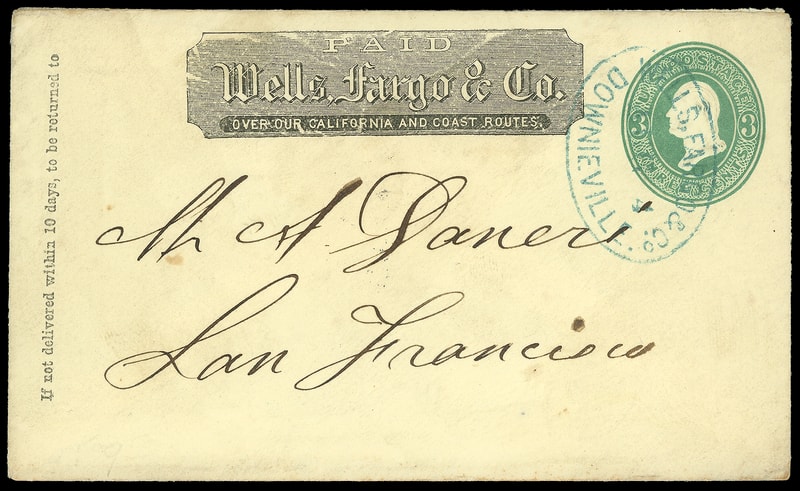 If not delivered within 10 days, to be returned to
PAID
Wells, Fargo & Co.
OVER OUR CALIFORNIA AND COAST ROUTES.
3 3
DOWNIEVILLE.
& Co.
A Daneri
San Francisco